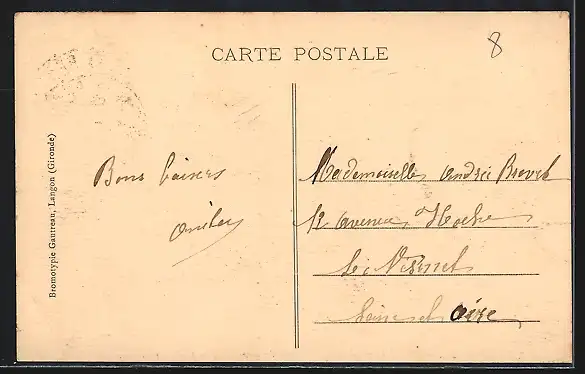 CARTE POSTALE
8
Bromotypie Gautreau, Langon (Gironde)
Bons baisers
Mademoiselle Andrée
12 Avenue Hoche
Le Vésinet
Seine et Oise